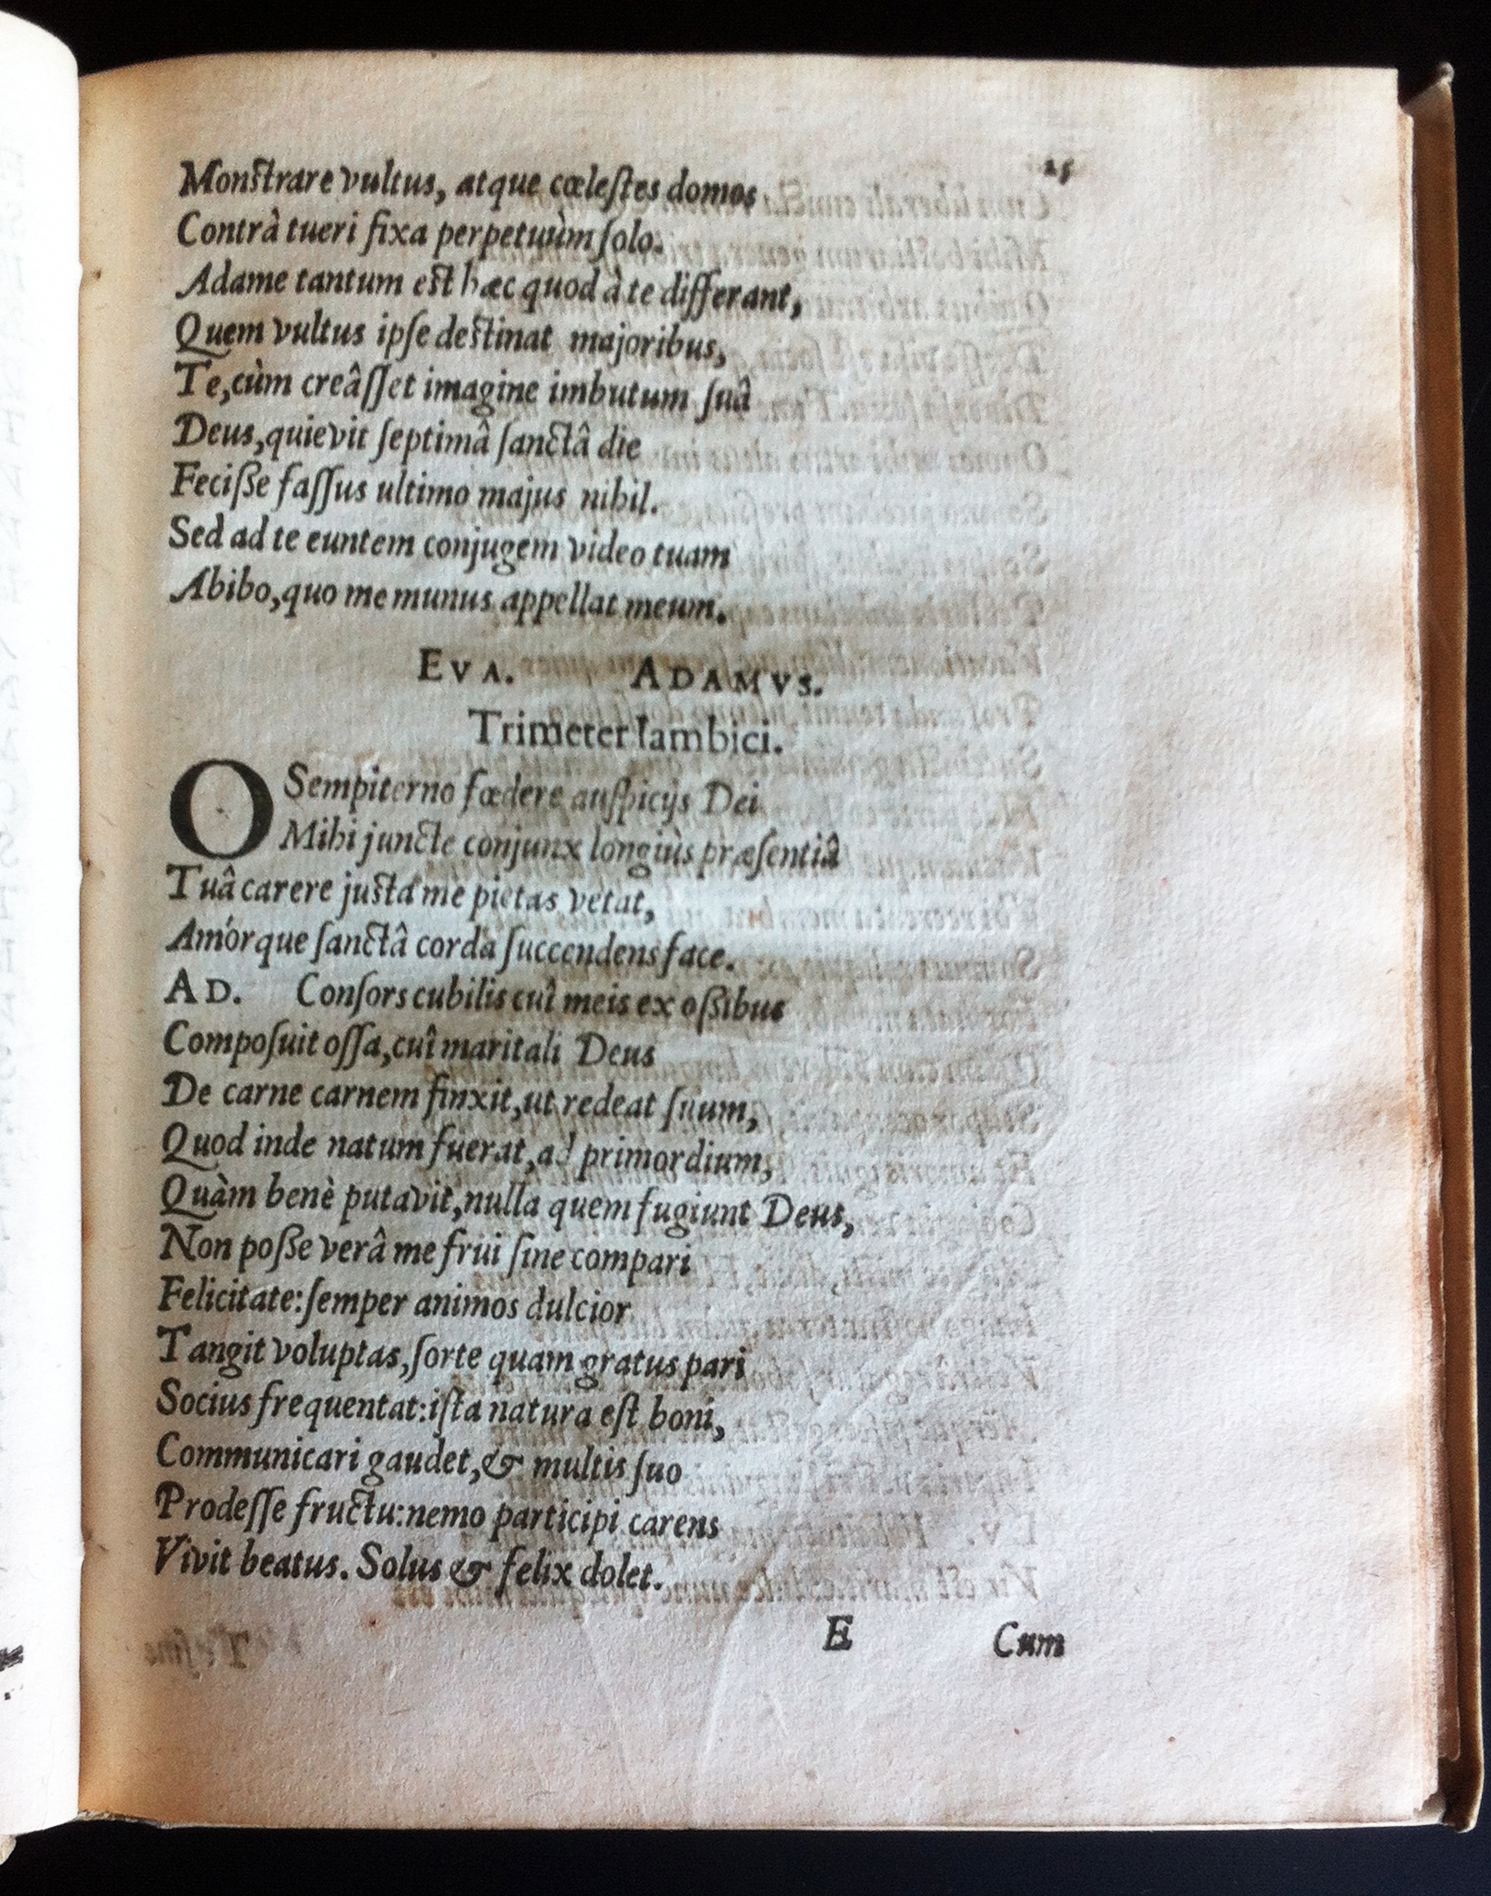 25
Monstrare vultus, atque cœlestes domos
Contrà tueri fixa perpetuùm solo.
Adame tantum est hæc quod à te differant,
Quem vultus ipse destinat majoribus,
Te, cùm creâsset imagine imbutum suâ
Deus, quievit septimâ sanctâ die
Fecisse fassus ultimo majus nihil.
Sed ad te euntem conjugem video tuam
Abibo, quo me munus appellat meum.
EVA. ADAMVS.
Trimeter Iambici.
O Sempiterno fœdere auspicijs Dei
Mihi juncte conjunx longiùs præsentiâ
Tuâ carere justa me pietas vetat,
Amórque sanctâ corda succendens face.
AD. Consors cubilis cuî meis ex ossibus
Composuit ossa, cuî maritali Deus
De carne carnem finxit, ut redeat suum,
Quod inde natum fuerat, ad primordium,
Quàm benè putavit, nulla quem fugiunt Deus,
Non posse verâ me frui sine compari
Felicitate: semper animos dulcior
Tangit voluptas, sorte quam gratus pari
Socius frequentat: ista natura est boni,
Communicari gaudet, & multis suo
Prodesse fructu: nemo participi carens
Vivit beatus. Solus & felix dolet.
E Cum